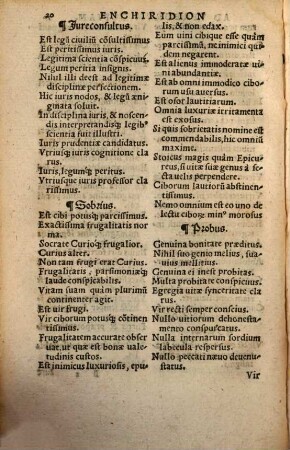 20 ENCHIRIDION
¶ Iureconsultus.
Est legũ civiliũ cõsultissimus
Est peritissimus iuris.
Legitima scientia cõspicuus.
Legum peritia insignis.
Nihil illi deest ad legitimæ
disciplinæ perfectionem.
Hic iuris nodos, & legũ æni-
gmata soluit.
In disciplina iuris, & noscen-
dis interpretandisq́ꝫ legib⁹
scientia fuit illustri.
Iuris prudentiæ candidatus.
Vtriusq́ꝫ iuris cognitione cla
rus.
Iuris, legumq́ꝫ peritus.
Vtriusque iuris professor cla
rissimus.
¶ Sobrius.
Est cibi potusq́ꝫ parcissimus.
Exactissima frugalitatis nor
ma.
Socrate Curioq́ꝫ frugalior.
Curius alter.
Non tam frugi erat Curius.
Frugalitatis, parsimoniæq́ꝫ
laude conspicabilis.
Vitam suam quàm plurimũ
continenter agit.
Est uir frugi.
Vir ciborum potusq́ꝫ cõtinen
tissimus.
Frugalitatem accuratè obser
uat, ut quæ est bonæ vale-
tudinis custos.
Est inimicus luxuriosis, epu-
lis, & non edax.
Eum uini cibique esse quàm
parcissimũ, ne inimici qui
dem negarent.
Est alienus immoderatæ ui-
ni abundantiæ.
Est ab omni immodico cibo-
rum usu auersus.
Est osor lautitiarum.
Omnia luxuriæ irritamenta
est exosus.
Si quis sobrietatis nomine est
commendabilis, hic omniũ
maximè.
Stoicus magis quàm Epicu-
reus, si uitæ suæ genus à
secta uelis perpendere.
Ciborum lautiorũ abstinen-
tissimus.
Nemo omnium est eo uno de
lectu ciborꝫ min⁹ morosus
¶ Probus.
Genuina bonitate præditus.
Nihil isto genio melius, sua-
uius mellitius.
Genuina ei inest probitas.
Multa probitate conspicuus.
Egregia uitæ syncritate cla-
rus.
Vir recti semper conscius.
Nullo uitiorum dehonesta-
mento conspurcatus.
Nulla internarum sordium
labecula respersus.
Nullo peccati næuo deuenu-
status.
Vir